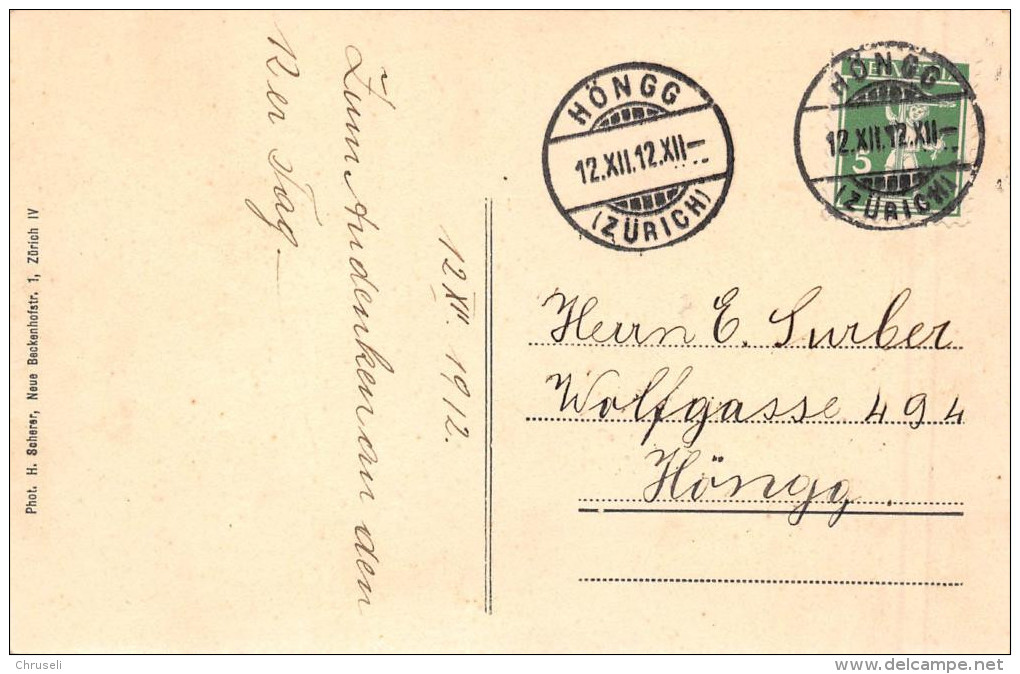 12 XII. 1912.
Zum Andenken an den
12er Tag.
Phot. H. Scherer, Neue Beckenhofstr. 1, Zürich IV
HÖNGG
12.XII.12.XII–
(ZÜRICH)
HELVETIA
5
HÖNGG
12.XII.12.XII–
(ZÜRICH)
Herrn E. Surber
Wolfgasse 494
Höngg.
Chruseli
www.delcampe.net